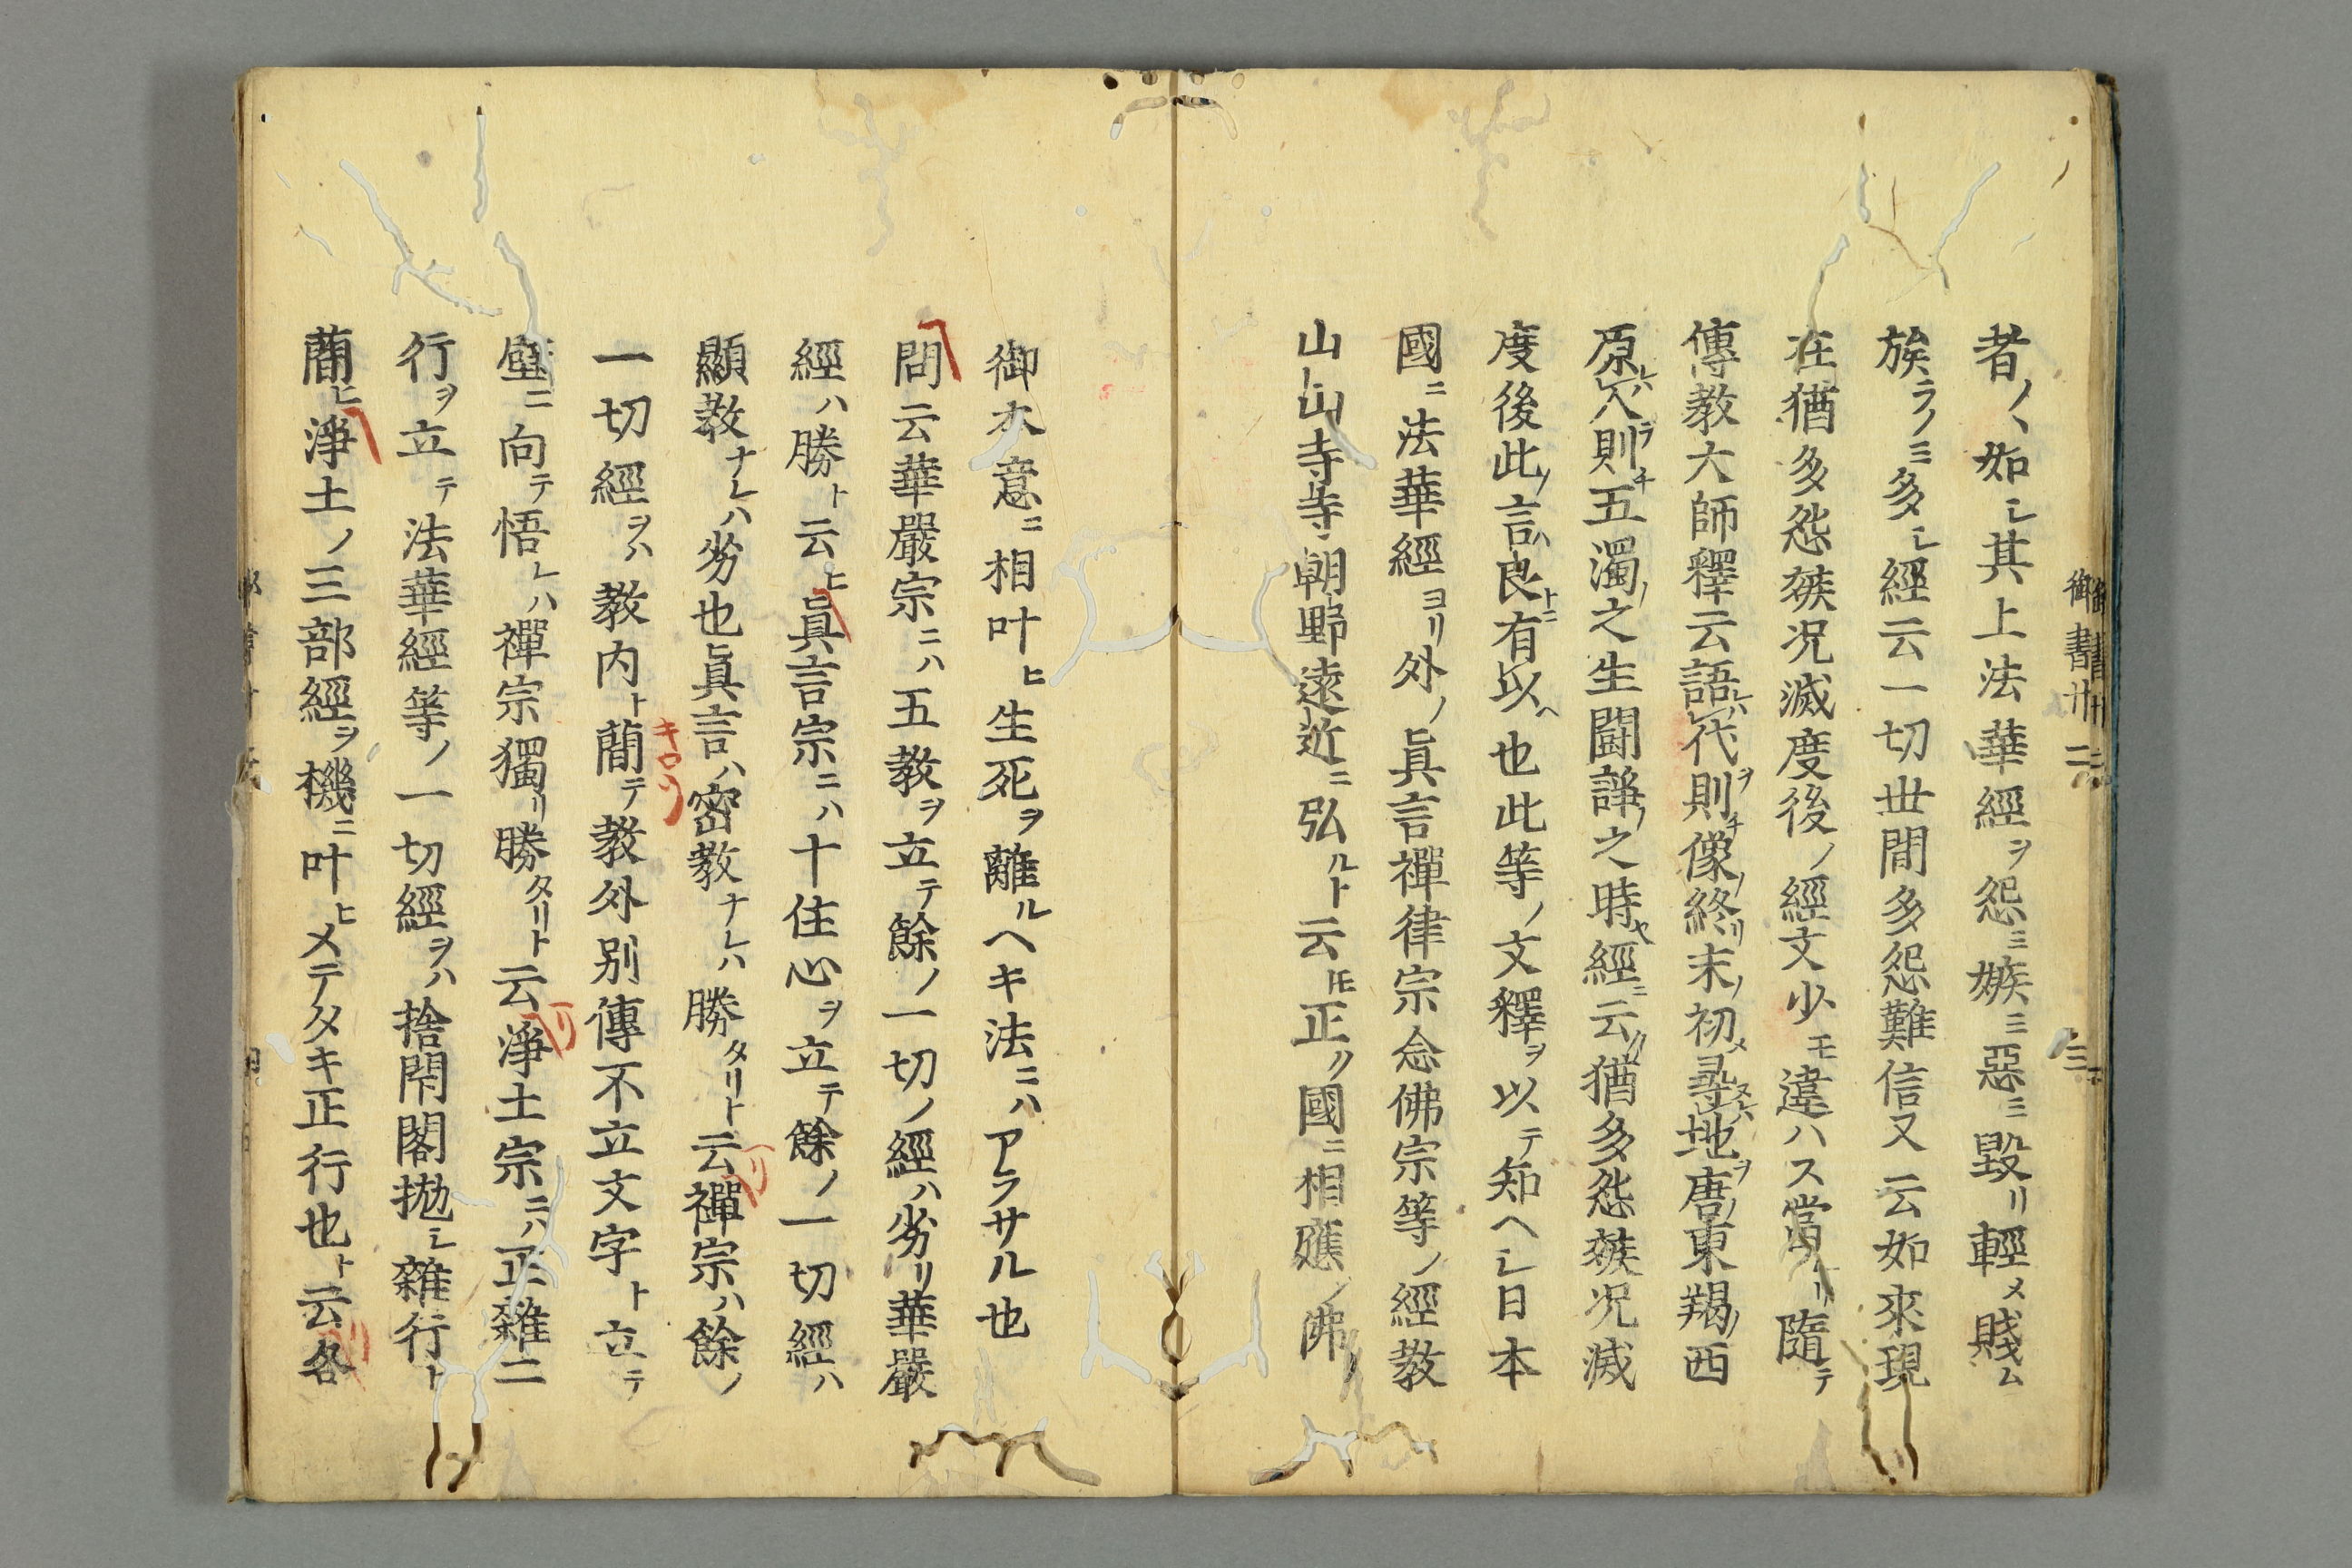 者ノヽ如シ其上法華經ヲ怨ミ嫉ミ惡ミ毀リ輕メ賤ム
族ラノミ多シ經云一切世間多怨難信又云如來現
在猶多怨嫉况滅度後ノ經文少モ違ハス當リ隨テ
傳教大師釋云語レハ代ヲ則チ像ノ終リ末ノ初メ尋ヌレハ地ヲ唐ノ東羯ノ西
原レハ人ヲ則チ五濁ノ之生鬪諍ノ之時ヤ經ニ云ク猶多怨嫉况滅
度後此ノ言ハ良トニ有以ヘ也此等ノ文釋ヲ以テ知ヘシ日本
國ニ法華經ヨリ外ノ眞言禪律宗念佛宗等ノ經教
山山寺寺朝野遠近ニ弘ルト云ヒ𪜈正ク國ニ相應ノ佛ノ
御本意ニ相叶ヒ生死ヲ離ルヘキ法ニハアラサル也
問云華嚴宗ニハ五教ヲ立テ餘ノ一切ノ經ハ劣リ華嚴
經ハ勝ト云ヒ眞言宗ニハ十住心ヲ立テ餘ノ一切經ハ
顯教ナレハ劣也眞言ハ密教ナレハ勝タリト云禪宗ハ餘ノ
一切經ヲハ教内ト蕳テ教外别傳不立文字ト立テ
壁ニ向テ悟レハ禪宗獨リ勝タリト云淨土宗ニハ正雜二
行ヲ立テ法華經等ノ一切經ヲハ捨閇閣抛シ雜行ト
蕳ヒ淨土ノ三部經ヲ機ニ叶ヒメテタキ正行也ト云各
御書卅二